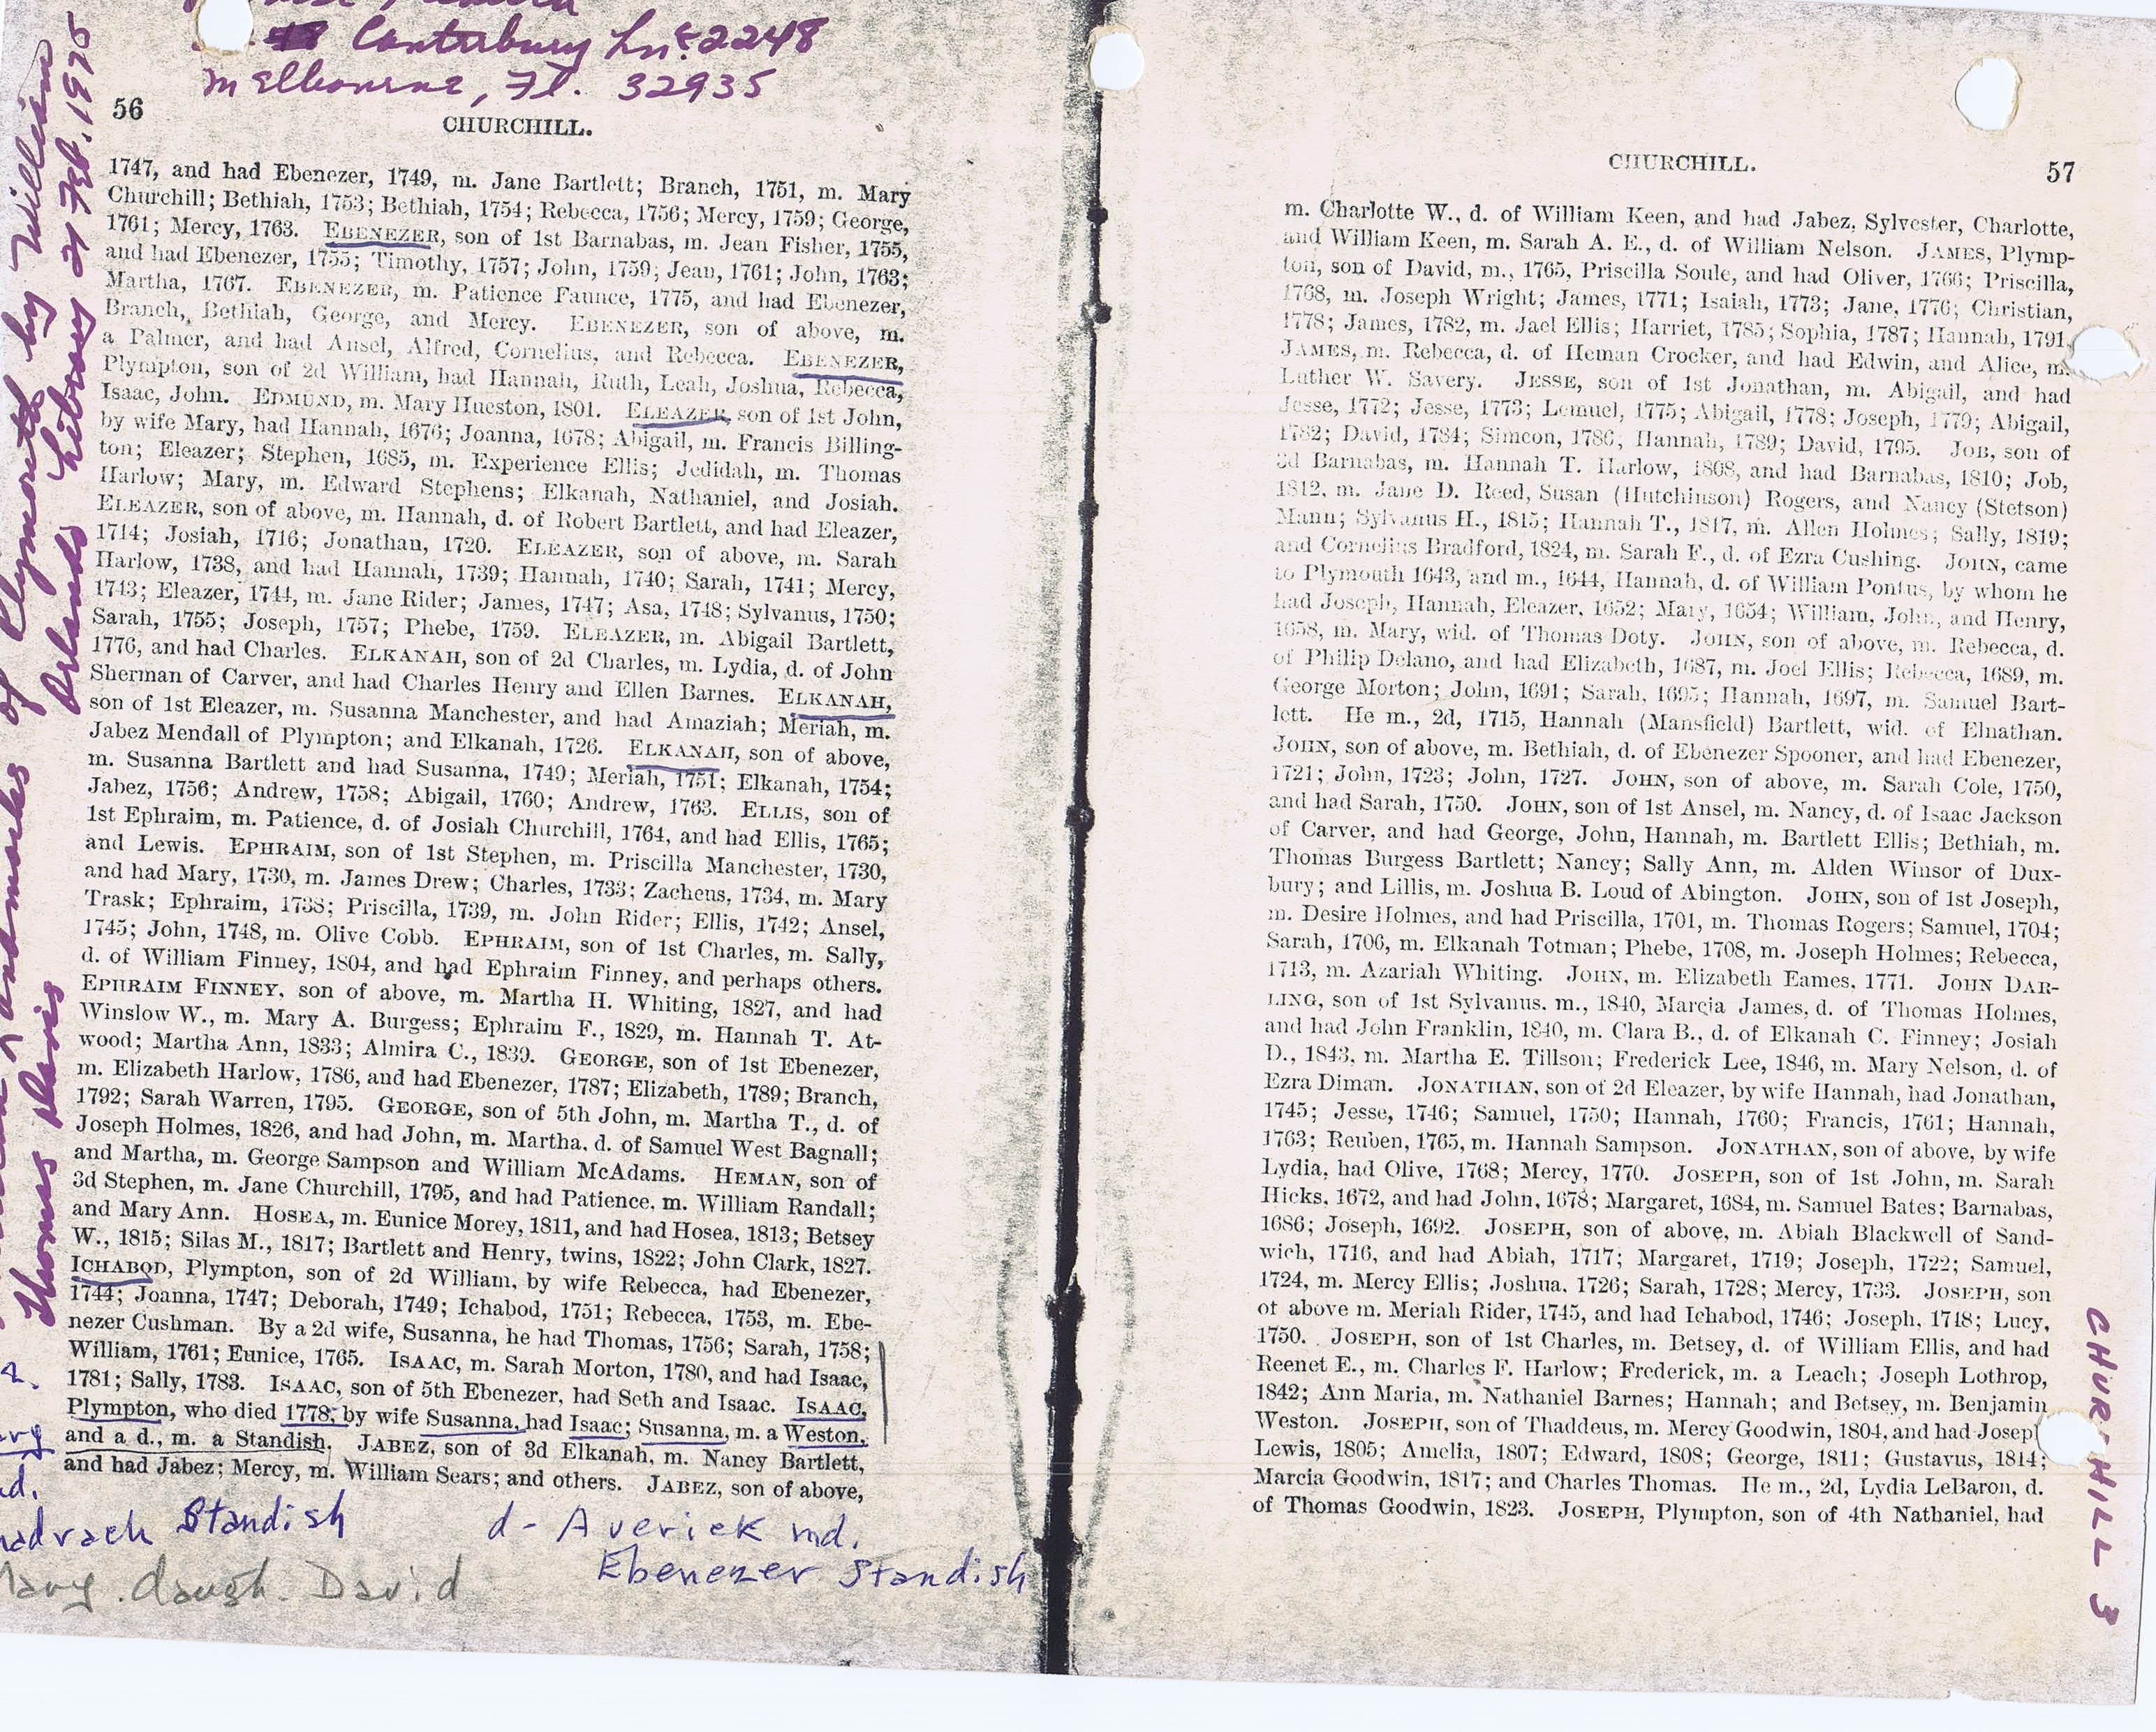 Canterbury Ln. 2248
Melbourne, Fl. 32935
of Plymouth by William
Thomas Davis
Orlando Library 21 Feb. 1975
56
CHURCHILL.
1747, and had Ebenezer, 1749, m. Jane Bartlett; Branch, 1751, m. Mary
Churchill; Bethiah, 1753; Bethiah, 1754; Rebecca, 1756; Mercy, 1759; George,
1761; Mercy, 1763. EBENEZER, son of 1st Barnabas, m. Jean Fisher, 1755,
and had Ebenezer, 1755; Timothy, 1757; John, 1759; Jean, 1761; John, 1763;
Martha, 1767. EBENEZER, m. Patience Faunce, 1775, and had Ebenezer,
Branch, Bethiah, George, and Mercy. EBENEZER, son of above, m.
a Palmer, and had Ansel, Alfred, Cornelius, and Rebecca. EBENEZER,
Plympton, son of 2d William, had Hannah, Ruth, Leah, Joshua, Rebecca,
Isaac, John. EDMUND, m. Mary Hueston, 1801. ELEAZER, son of 1st John,
by wife Mary, had Hannah, 1676; Joanna, 1678; Abigail, m. Francis Billing-
ton; Eleazer; Stephen, 1685, m. Experience Ellis; Jedidah, m. Thomas
Harlow; Mary, m. Edward Stephens; Elkanah, Nathaniel, and Josiah.
ELEAZER, son of above, m. Hannah, d. of Robert Bartlett, and had Eleazer,
1714; Josiah, 1716; Jonathan, 1720. ELEAZER, son of above, m. Sarah
Harlow, 1738, and had Hannah, 1739; Hannah, 1740; Sarah, 1741; Mercy,
1743; Eleazer, 1744, m. Jane Rider; James, 1747; Asa, 1748; Sylvanus, 1750;
Sarah, 1755; Joseph, 1757; Phebe, 1759. ELEAZER, m. Abigail Bartlett,
1776, and had Charles. ELKANAH, son of 2d Charles, m. Lydia, d. of John
Sherman of Carver, and had Charles Henry and Ellen Barnes. ELKANAH,
son of 1st Eleazer, m. Susanna Manchester, and had Amaziah; Meriah, m.
Jabez Mendall of Plympton; and Elkanah, 1726. ELKANAH, son of above,
m. Susanna Bartlett and had Susanna, 1749; Meriah, 1751; Elkanah, 1754;
Jabez, 1756; Andrew, 1758; Abigail, 1760; Andrew, 1763. ELLIS, son of
1st Ephraim, m. Patience, d. of Josiah Churchill, 1764, and had Ellis, 1765;
and Lewis. EPHRAIM, son of 1st Stephen, m. Priscilla Manchester, 1730,
and had Mary, 1730, m. James Drew; Charles, 1733; Zacheus, 1734, m. Mary
Trask; Ephraim, 1738; Priscilla, 1739, m. John Rider; Ellis, 1742; Ansel,
1745; John, 1748, m. Olive Cobb. EPHRAIM, son of 1st Charles, m. Sally,
d. of William Finney, 1804, and had Ephraim Finney, and perhaps others.
EPHRAIM FINNEY, son of above, m. Martha H. Whiting, 1827, and had
Winslow W., m. Mary A. Burgess; Ephraim F., 1829, m. Hannah T. At-
wood; Martha Ann, 1833; Almira C., 1839. GEORGE, son of 1st Ebenezer,
m. Elizabeth Harlow, 1786, and had Ebenezer, 1787; Elizabeth, 1789; Branch,
1792; Sarah Warren, 1795. GEORGE, son of 5th John, m. Martha T., d. of
Joseph Holmes, 1826, and had John, m. Martha, d. of Samuel West Bagnall;
and Martha, m. George Sampson and William McAdams. HEMAN, son of
3d Stephen, m. Jane Churchill, 1795, and had Patience, m. William Randall;
and Mary Ann. HOSEA, m. Eunice Morey, 1811, and had Hosea, 1813; Betsey
W., 1815; Silas M., 1817; Bartlett and Henry, twins, 1822; John Clark, 1827.
ICHABOD, Plympton, son of 2d William, by wife Rebecca, had Ebenezer,
1744; Joanna, 1747; Deborah, 1749; Ichabod, 1751; Rebecca, 1753, m. Ebe-
nezer Cushman. By a 2d wife, Susanna, he had Thomas, 1756; Sarah, 1758;
William, 1761; Eunice, 1765. ISAAC, m. Sarah Morton, 1780, and had Isaac,
1781; Sally, 1783. ISAAC, son of 5th Ebenezer, had Seth and Isaac. ISAAC,
Plympton, who died 1778, by wife Susanna, had Isaac; Susanna, m. a Weston,
and a d., m. a Standish. JABEZ, son of 3d Elkanah, m. Nancy Bartlett,
and had Jabez; Mercy, m. William Sears; and others. JABEZ, son of above,
Standish
d - Averick md.
Ebenezer Standish
daugh. David
CHURCHILL.
57
m. Charlotte W., d. of William Keen, and had Jabez, Sylvester, Charlotte,
and William Keen, m. Sarah A. E., d. of William Nelson. JAMES, Plymp-
ton, son of David, m., 1765, Priscilla Soule, and had Oliver, 1766; Priscilla,
1768, m. Joseph Wright; James, 1771; Isaiah, 1773; Jane, 1776; Christian,
1778; James, 1782, m. Jael Ellis; Harriet, 1785; Sophia, 1787; Hannah, 1791.
JAMES, m. Rebecca, d. of Heman Crocker, and had Edwin, and Alice, m.
Luther W. Savery. JESSE, son of 1st Jonathan, m. Abigail, and had
Jesse, 1772; Jesse, 1773; Lemuel, 1775; Abigail, 1778; Joseph, 1779; Abigail,
1782; David, 1784; Simeon, 1786; Hannah, 1789; David, 1795. JOB, son of
3d Barnabas, m. Hannah T. Harlow, 1808, and had Barnabas, 1810; Job,
1812, m. Jane D. Reed, Susan (Hutchinson) Rogers, and Nancy (Stetson)
Mann; Sylvanus H., 1815; Hannah T., 1817, m. Allen Holmes; Sally, 1819;
and Cornelius Bradford, 1824, m. Sarah F., d. of Ezra Cushing. JOHN, came
to Plymouth 1643, and m., 1644, Hannah, d. of William Pontus, by whom he
had Joseph, Hannah, Eleazer, 1652; Mary, 1654; William, John, and Henry,
1658, m. Mary, wid. of Thomas Doty. JOHN, son of above, m. Rebecca, d.
of Philip Delano, and had Elizabeth, 1687, m. Joel Ellis; Rebecca, 1689, m.
George Morton; John, 1691; Sarah, 1695; Hannah, 1697, m. Samuel Bart-
lett. He m., 2d, 1715, Hannah (Mansfield) Bartlett, wid. of Elnathan.
JOHN, son of above, m. Bethiah, d. of Ebenezer Spooner, and had Ebenezer,
1721; John, 1723; John, 1727. JOHN, son of above, m. Sarah Cole, 1750,
and had Sarah, 1750. JOHN, son of 1st Ansel, m. Nancy, d. of Isaac Jackson
of Carver, and had George, John, Hannah, m. Bartlett Ellis; Bethiah, m.
Thomas Burgess Bartlett; Nancy; Sally Ann, m. Alden Winsor of Dux-
bury; and Lillis, m. Joshua B. Loud of Abington. JOHN, son of 1st Joseph,
m. Desire Holmes, and had Priscilla, 1701, m. Thomas Rogers; Samuel, 1704;
Sarah, 1706, m. Elkanah Totman; Phebe, 1708, m. Joseph Holmes; Rebecca,
1713, m. Azariah Whiting. JOHN, m. Elizabeth Eames, 1771. JOHN DAR-
LING, son of 1st Sylvanus, m., 1840, Marcia James, d. of Thomas Holmes,
and had John Franklin, 1840, m. Clara B., d. of Elkanah C. Finney; Josiah
D., 1843, m. Martha E. Tillson; Frederick Lee, 1846, m. Mary Nelson, d. of
Ezra Diman. JONATHAN, son of 2d Eleazer, by wife Hannah, had Jonathan,
1745; Jesse, 1746; Samuel, 1750; Hannah, 1760; Francis, 1761; Hannah,
1763; Reuben, 1765, m. Hannah Sampson. JONATHAN, son of above, by wife
Lydia, had Olive, 1768; Mercy, 1770. JOSEPH, son of 1st John, m. Sarah
Hicks, 1672, and had John, 1678; Margaret, 1684, m. Samuel Bates; Barnabas,
1686; Joseph, 1692. JOSEPH, son of above, m. Abiah Blackwell of Sand-
wich, 1716, and had Abiah, 1717; Margaret, 1719; Joseph, 1722; Samuel,
1724, m. Mercy Ellis; Joshua, 1726; Sarah, 1728; Mercy, 1733. JOSEPH, son
of above m. Meriah Rider, 1745, and had Ichabod, 1746; Joseph, 1748; Lucy,
1750. JOSEPH, son of 1st Charles, m. Betsey, d. of William Ellis, and had
Reenet E., m. Charles F. Harlow; Frederick, m. a Leach; Joseph Lothrop,
1842; Ann Maria, m. Nathaniel Barnes; Hannah; and Betsey, m. Benjamin
Weston. JOSEPH, son of Thaddeus, m. Mercy Goodwin, 1804, and had Josep
Lewis, 1805; Amelia, 1807; Edward, 1808; George, 1811; Gustavus, 1814;
Marcia Goodwin, 1817; and Charles Thomas. He m., 2d, Lydia LeBaron, d.
of Thomas Goodwin, 1823. JOSEPH, Plympton, son of 4th Nathaniel, had
CHURCHILL 3